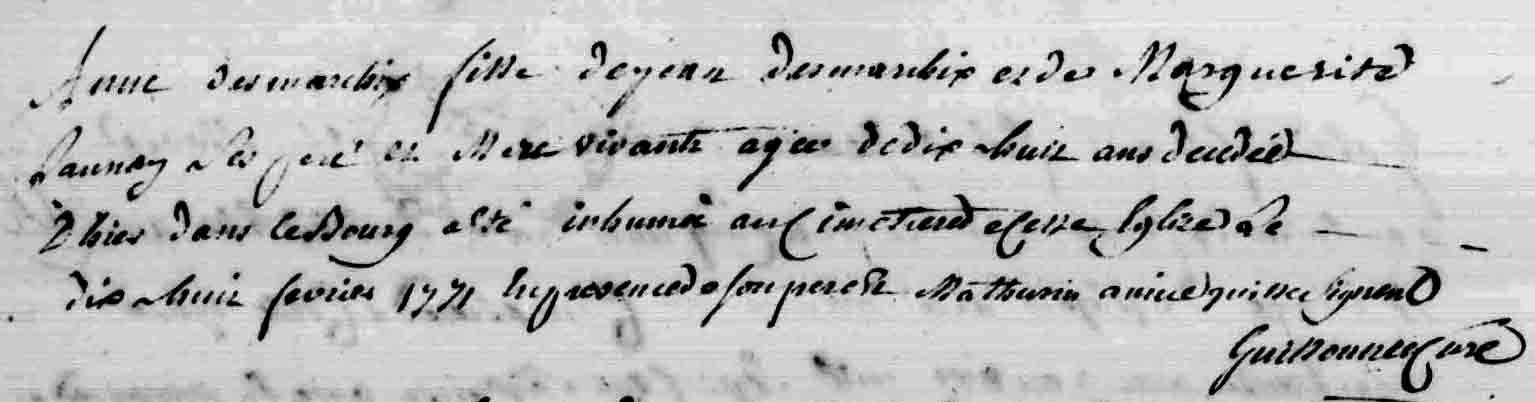 Anne desmarchix fille de jean desmarchix et de Marguerite
Launay ses pere et Mere vivants agée de dix huit ans decedée
d'hier dans le Bourg a été inhumée au Cimetiere de cette Eglise Le
dix huit fevrier 1771 En presence de son pere et Mathurin qui ne signent
Curé